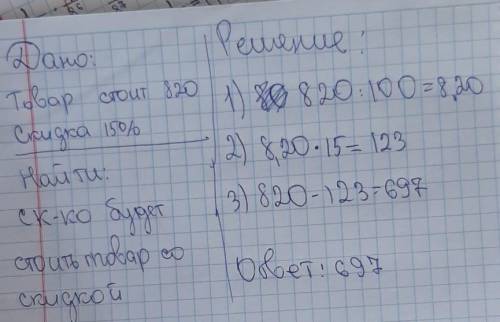 Дано:
Товар стоит 820
Скидка 15%
Найти:
ск-ко будет
стоить товар со
скидкой
Решение:
1) 820:100=8,20
2) 8,20·15=123
3) 820-123=697
Ответ: 697